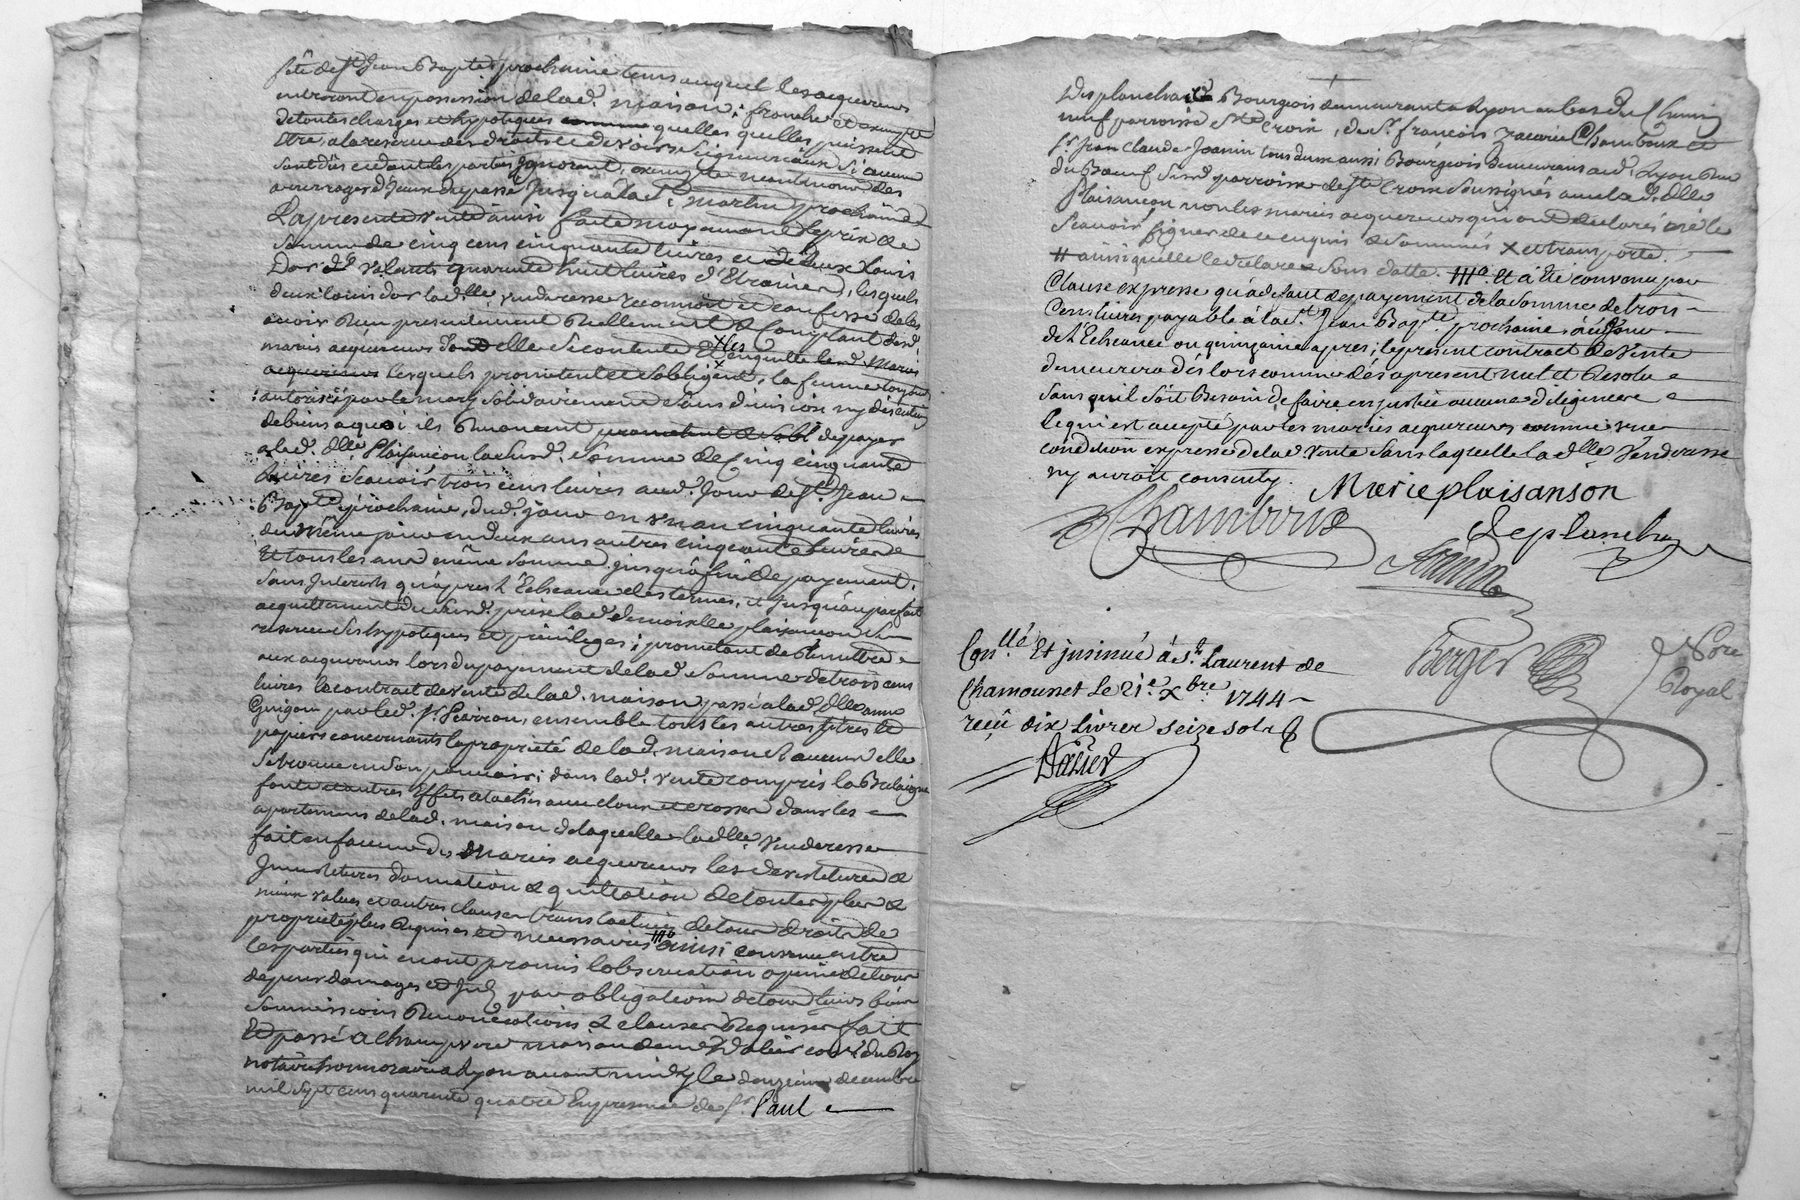 fête de St Jean Baptte prochaine tems auquel les acquereurs
entreront en possession de lad. maison; franche et exempte
de toutes charges et hypoteques quelles quelles puissent
être, a la reserve des droits et devoirs Seigneuriaux Si aucuns
sont dûs et dont les parties Ignorent, exempte neantmoins des
arrerages d'Iceux du passé Jusqu'a la St martin prochaine
La presente vente ainsi faite moyennant le prix de
somme de cinq cens cinquante livres et deux Louis
Dor de valants quarante huit livres d'Etraines, lesquels
deux louis dor lad. dlle venderesse reconnoit et confesse de les
avoir reçu presentement reellement & Comptant desd
maries acquereurs dont elle se contente Et en quitte lesd. Mariés
acquereurs lesquels promettent et s'obligent, la femme
autorisée par le mary solidairement sans division ny discution
de biens a quoi ils renoncent de payer
a lad. dlle Plaisancon lad. somme de Cinq cens cinquante
livres Scavoir trois cens livres aud. Jour de St. Jean
Baptte prochaine, dud. jour en un an cinquante livres
du même jour en deux ans autres cinquante livres
Et tous les ans même somme jusqu'a fin de payement.
sans Interests qu'apres l'Echeance des termes, et Jusqu'au parfait
acquittement dud. prix lad. demoiselle plaisancon Se
reserve ses hypoteques et privileges; promettant de remettre
aux acquereurs lors du payement de lad. somme de trois cens
livres le contract de vente de lad. maison passé a lad. dlle anne
Guigou par led. Sr Pierron ensemble tous les autres titres et
papiers concernants la proprieté de lad. maison Si aucuns elle
Se trouve en Son pouvoir; dans lad. vente compris la
fonte et autres Effets atachés avec clous et crosses dans les
apartemens de lad. maison de laquelle lad. dlle venderesse
fait en faveur des Mariés acquereurs les devestitures &
Investitures donnation & quittation de toutes plus &
mieux values et autres clauses translatives de tous droits de
proprieté plus requises et necessaires ainsi convenu entre
les parties qui en ont promis l'observation a peine de tous
depens damages et Int. par obligation de tous leurs biens
Soumissions Renonciations & clauses Requises fait
Et passé a maison de Me Dalier conr. du Roy
notaire honoraire a Lyon avant midy le douzieme decembre
mil Sept cens quarante quatre En presence de Sr. Paul
Desplanches Bourgeois demeurant a Lyon au bas du Chemin
neuf parroisse Ste Croix, de Sr. françois Zacarie Chamboux et
Sr. Jean Claude Jeanin tous deux aussi Bourgeois demeurans aud. Lyon Rue
du Bœuf Susd. parroisse de Ste Croix Soussignés avec lad. Dlle
Plaisancon non les mariés acquereurs qui ont declarés ne le
Scavoir signer de ce enquis & Sommés X et transporté.
# ainsi quelle le declare Sous datte. Et a été convenu par
Clause expresse qu'a defaut de payement de la Somme de trois
Cens livres payable a la St. Jean Baptte. prochaine, au Jour
de l'Echeance ou quinzaine apres; le present contract de vente
demeurera dés lors comme dés apresent nul et Resolu
Sans quil Soit Besoin de faire en justice aucune diligence
Ce qui est accepté par les mariés acquereurs comme une
condition expresse de lad. Vente Sans laquelle lad. dlle Venderesse
ny auroit consenty.
Marie plaisanson
Chamboux
Desplanches
Jeannin
Conllé Et insinué à St Laurent de
Chamousset Le 21e. Xbre 1744
reçû dix Livres seize sols
Berger
Nore
Royal
Dalier